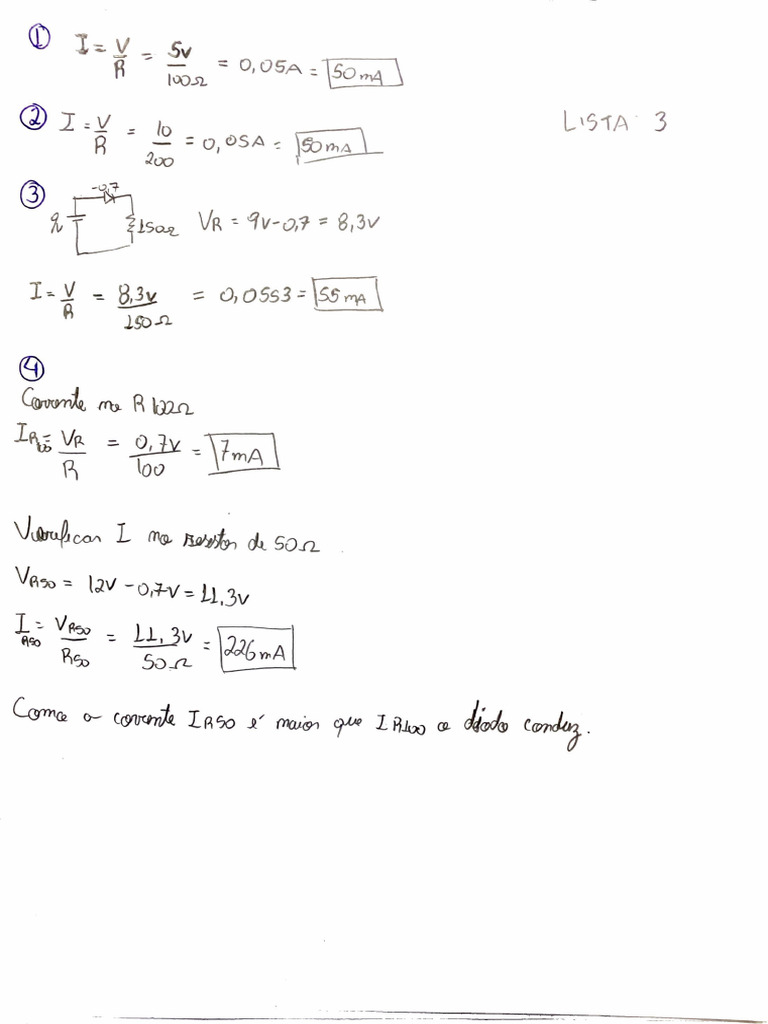 ① I = V/R = 5v/100Ω = 0,05A = 50mA
② I = V/R = 10/200 = 0,05A = 50mA
LISTA 3
③ -0,7
9v 150Ω VR = 9v-0,7 = 8,3v
I = V/R = 8,3v/150Ω = 0,0553 = 55mA
④
Corrente no R100Ω
IR100 = VR/R = 0,7v/100 = 7mA
Verificar I no resistor de 50Ω
VR50 = 12v - 0,7v = 11,3v
IR50 = VR50/R50 = 11,3v/50Ω = 226mA
Como a corrente IR50 é maior que IR100 o diodo conduz.